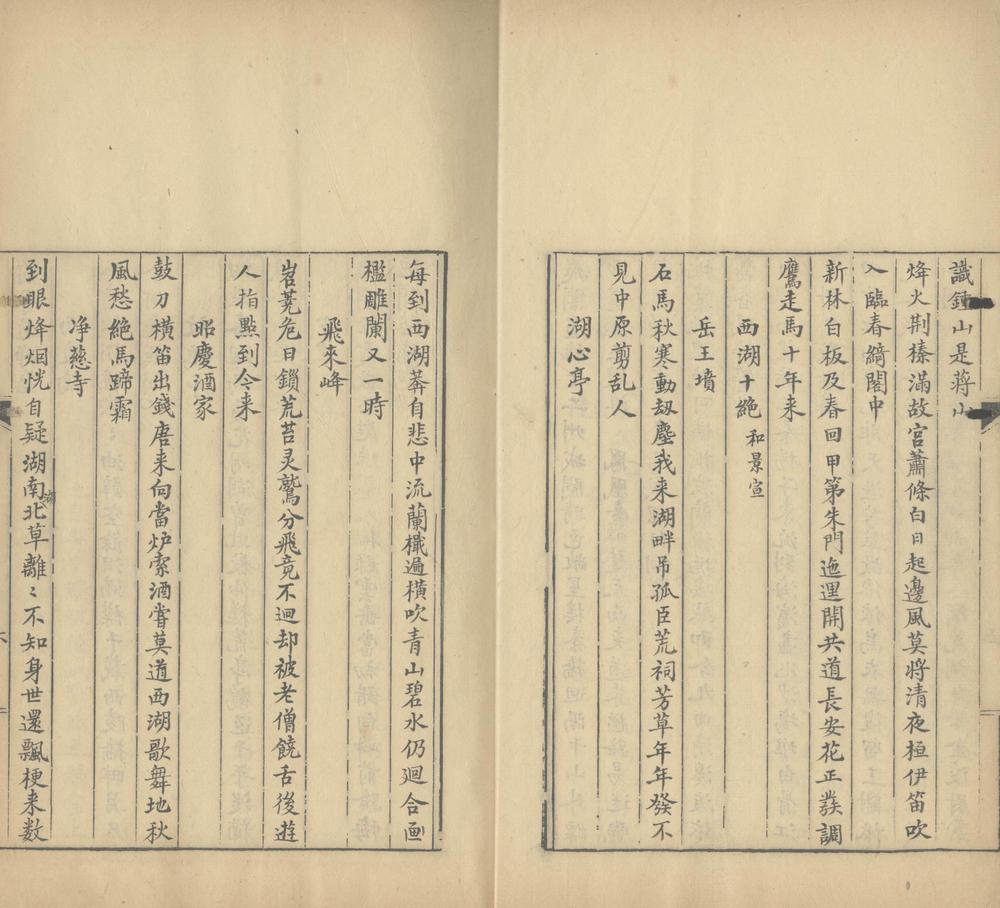 識鍾山是蔣山
烽火荆榛滿故宮蕭條白日起邊風莫將清夜桓伊笛吹
入臨春綺閣中
新林白板及春回甲第朱門迤邐開共道長安花正發調
鷹走馬十年来
西湖十絶 和景宣
岳王墳
石馬秋寒動刼塵我来湖畔吊孤臣荒祠芳草年年發不
見中原剪乱人
湖心亭
每到西湖莽自悲中流蘭檝遍橫吹青山碧水仍迴合畫
檻雕闌又一時
飛來峰
岧荛危日鎖荒苔灵鷲分飛竟不迴却被老僧饒舌後遊
人指點到今来
昭慶酒家
鼓刀橫笛出錢唐来向當炉索酒嘗莫道西湖歌舞地秋
風愁絶馬蹄霜
净慈寺
到眼烽烟恍自疑湖南湖北草離〻不知身世還飄梗来数